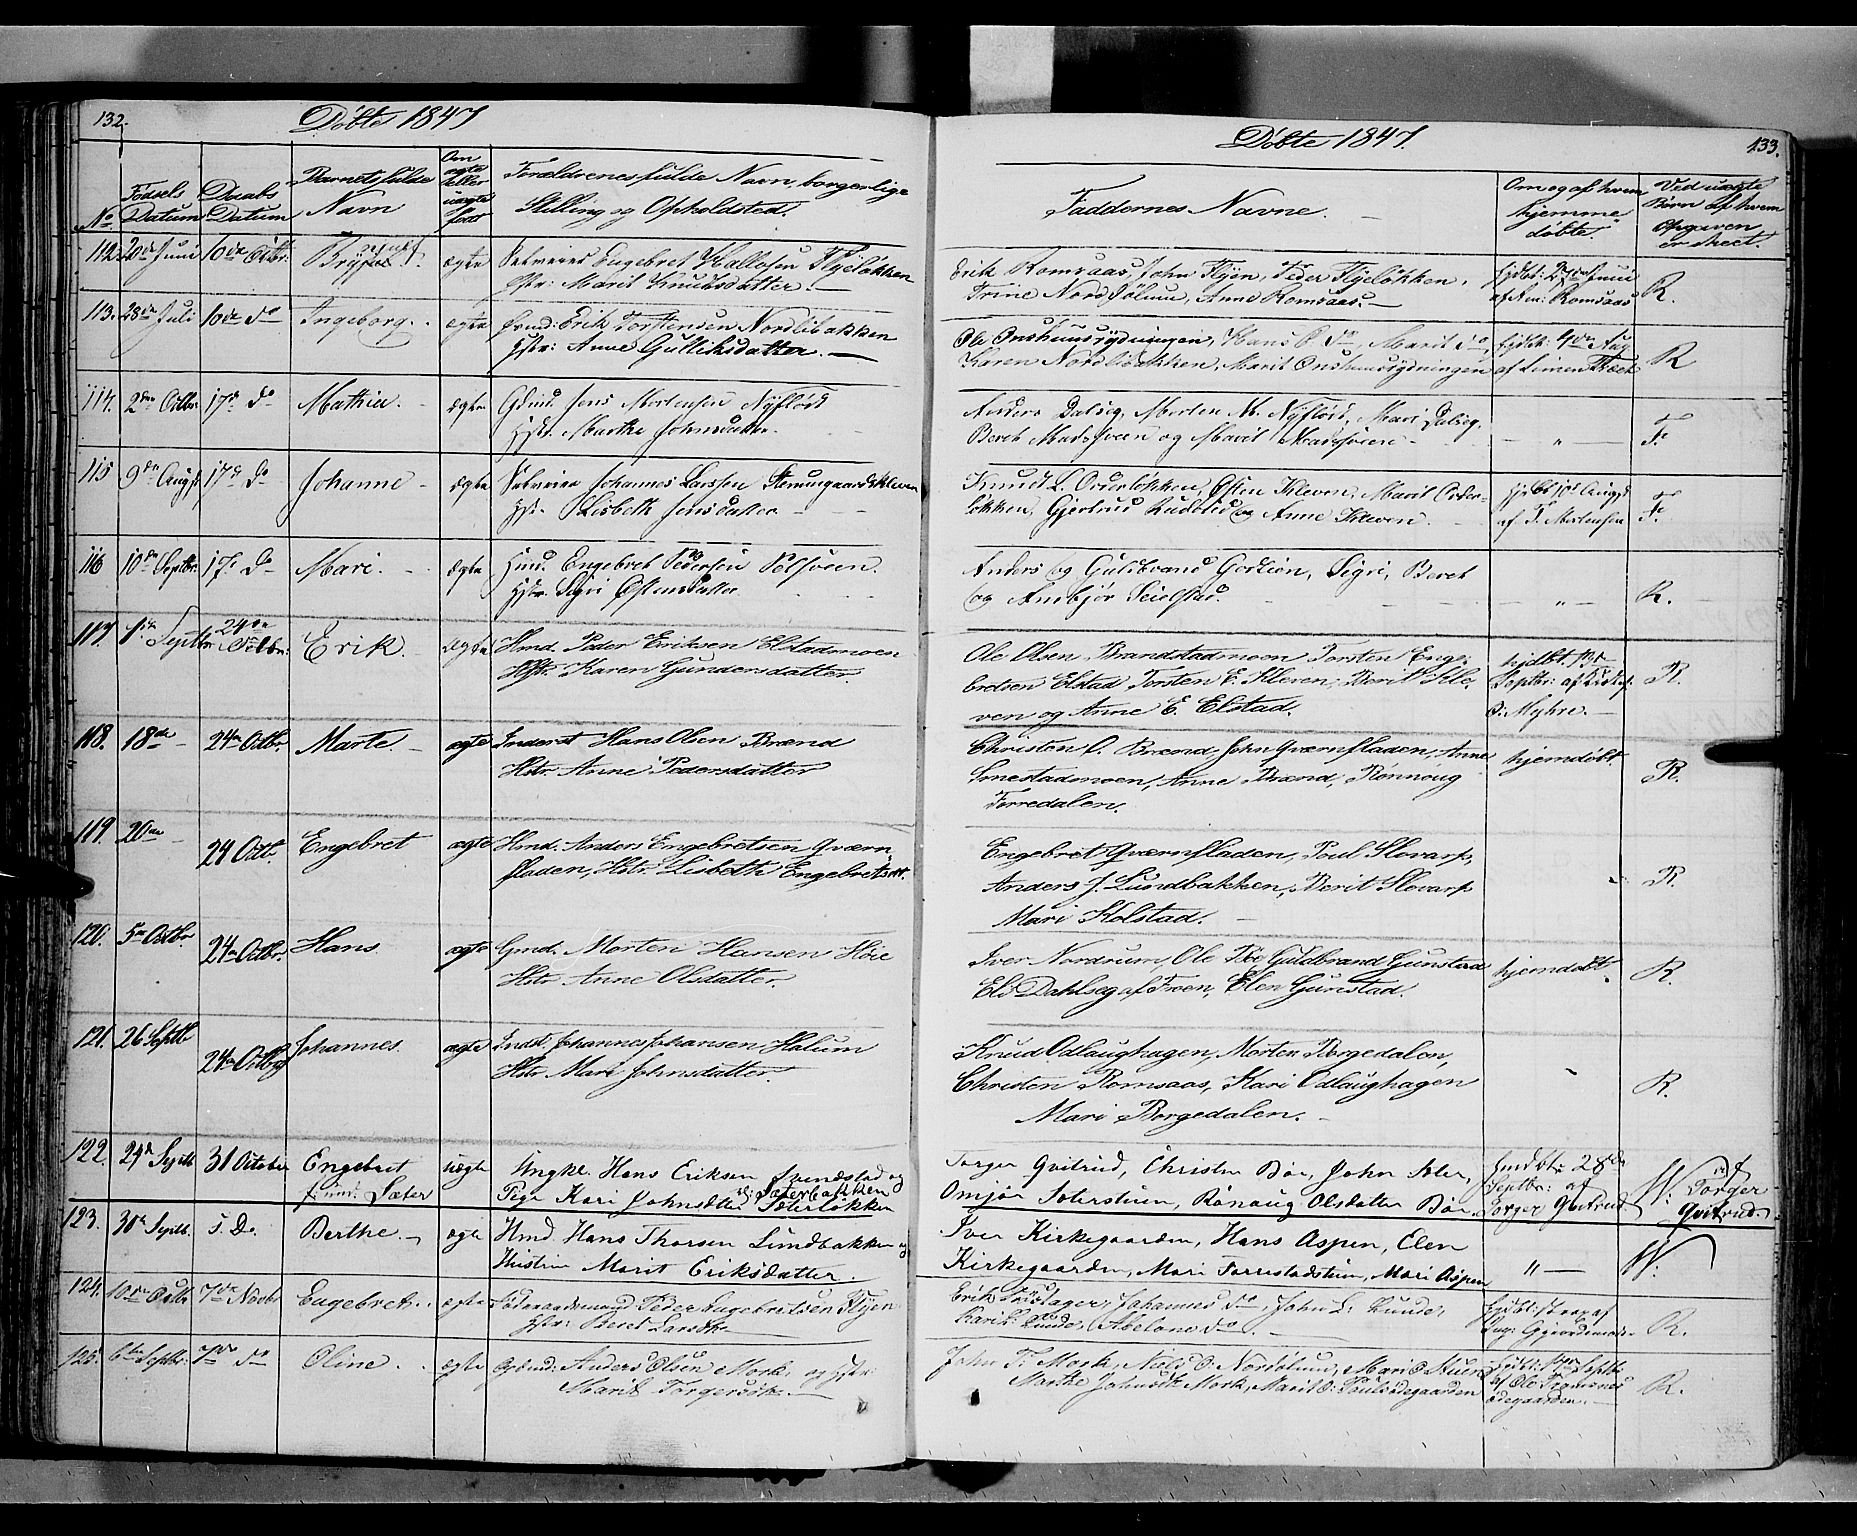 132.
Døbte 1847
No
Fødsels Datum
Daabs Datum
Barnets fulde Navn
Om ægte eller uægte født
Forældrenes fulde Navn, borgerlige
Stilling og Opholdsted.
112. 20de Juni 10de Octbr. ægte Selveier Engebret Hallosen Flyeløkken
Hstr: Marit Knudsdatter.
113. 28de Juli 10de do Ingeborg. ægte Erik Torstensen Nordlibakken
Hstr: Anne Gulliksdatter.
114. 2den Octbr. 17de do Mathia ægte Gdmd. Jens Mortensen Nyfløt
Hstr. Marthe Johnsdatter
115 9de Augst 17de do Johanne ægte Selveier Johannes Larssen
Hst. Lisbeth Jensdatter
116 10de Septbr. 17de do Mari. ægte Hmd. Engebret Pedersen
Hstr. Sigri Østensdatter
117. 1ste Septbr. 24de Octbr. Erik. ægte Hmd. Peder Eriksen Elstadmoen
Hstr. Karen Gundersdatter
118. 18de 24de Octbr. Marte ægte Inderst Hans Olsen Brænd
Hstr Anne Pedersdatter
119. 20de 24 Octb. Engebret ægte Hmd. Anders Engebretsen Qværn
fladen, Hstr. Lisbeth Engebretsdt.
120. 5te Octbr 24de Octbr. Hans. ægte Gmd. Morten Hansen Høie
Hstr Anne Olsdatter.
121. 26 Septb 24de Octbr Johannes. ægte Indst. Johannes Johansen Halum
Hstr Mari Johnsdatter.
122. 29de Septb 31 October Engebret uægte Ungkl. Hans Eriksen og
Sæter Pige Kari Johnsdatter Sæterløkken
Sæterbakken
123. 30te Septb. s. D. Berthe. ægte Hmd. Hans Thorsen Lundbakken og
Hustru Marit Eriksdatter.
124. 10de Octbr 7de Novbr Engebret. ægte Peder Engebretsen Flyen
Hstr: Beret Larsdtr
125. 6te Septbr: 7de do Oline. ægte Anders Olsen Mork, og Hstr:
Marit Torgersdtr.
Døbte 1847.
133.
Faddernes Navne.
Om og af hvem hjemme døbte.
Ved uægte Børn af hvem Opgaven er skeet.
Erik Romsaas, John Flyen, Peder Flyeløkken,
Trine Nordsølum, Anne Romsaas.
R.
Ole Onshuusrydningen, Hans O. do, Marit do,
Karen Nordlibakken, Marit Onshuusrydningen
R
Anders Dalseg, Morten M. Nyfløt, Mari Dalseg,
Beret Madssveen og Marit Madssveen
F.
Knud L. Overløkken, Østen Kleven, Marit Over-
løkken, Gjertrud og Anne Kleven.
hjdbt 10de Augst
af T. Mortensen
F.
Anders og Guldbrand Sigri, Beret
og Anbjør
R.
Ole Olsen Brandstadmoen Torsten Enge-
bretsen Elstad Torsten E. Kleven, Berit Kle-
ven og Anne E. Elstad.
hjdbt.
Septbr: af
O. Myhre.
R.
Christen O. Brænd, John Qværnfladen, Anne
Smestadmoen, Anne Brænd, Rønnoug
Forredalen.
hjemdøbt.
R.
Engebret Qværnfladen, Poul Slovarp,
Anders J. Lundbakken, Berit Slovarp
Mari Kolstad.
R.
Iver Nordrum, Ole Bø Guldbrand Gunstad
Eli Dahlseg af Froen, Elen Gunstad.
hjemdøbt.
R.
Knud Odlaughagen, Morten Borgedalen,
Christen Romsaas, Kari Odlaughagen
Mari Borgedalen.
R.
Torger Qvitrud, Christen Bø, John
Rønaug Olsdatter Bø.
hmdbt: 28de
Septbr: af
Torger Qvitrud
W: ved Torger
Qvitrud.
Iver Kirkegaarden, Hans Aspen, Elen
Kirkegaarden, Mari Forrestadstuen, Mari Aspen
W:
Johannes do, John L: Lunde,
Kari Lunde, Abelone do.
R.
John T. Mork, Niels O. Nordsølum,
Marthe Johnsdtr Mork, Marit O: Poulsødegaarden
R.